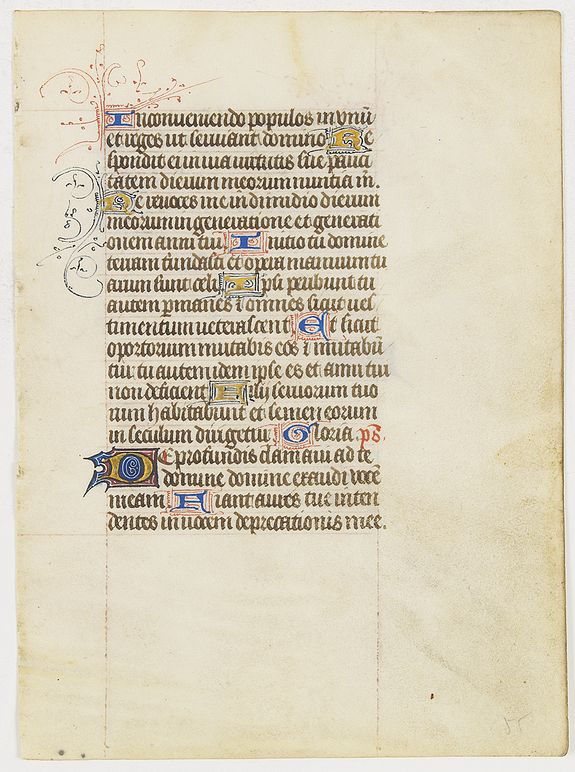 In conveniendo populos in vnū
et reges ut serviant domino Re
spondit ei in via virtutis sue pauci
tatem dierum meorum nuntia m̄.
Ne revoces me in dimidio dierum
meorum in generatione et generati
onem anni tui Initio tu domine
terram fundasti et opera manuum tu
arum sunt celi Ipsi peribunt tu
autem permanes et omnes sicut ves
timentum veterascent Et sicut
oportorium mutabis eos et mutabū
tur tu autem idem ipse es et anni tui
non deficient Filij servorum tuo
rum habitabunt et semen eorum
in seculum dirigetur Gloria ps.
De profundis clamavi ad te
domine domine exaudi vocē
meam Fiant aures tue inten
dentes in vocem deprecationis mee.
55